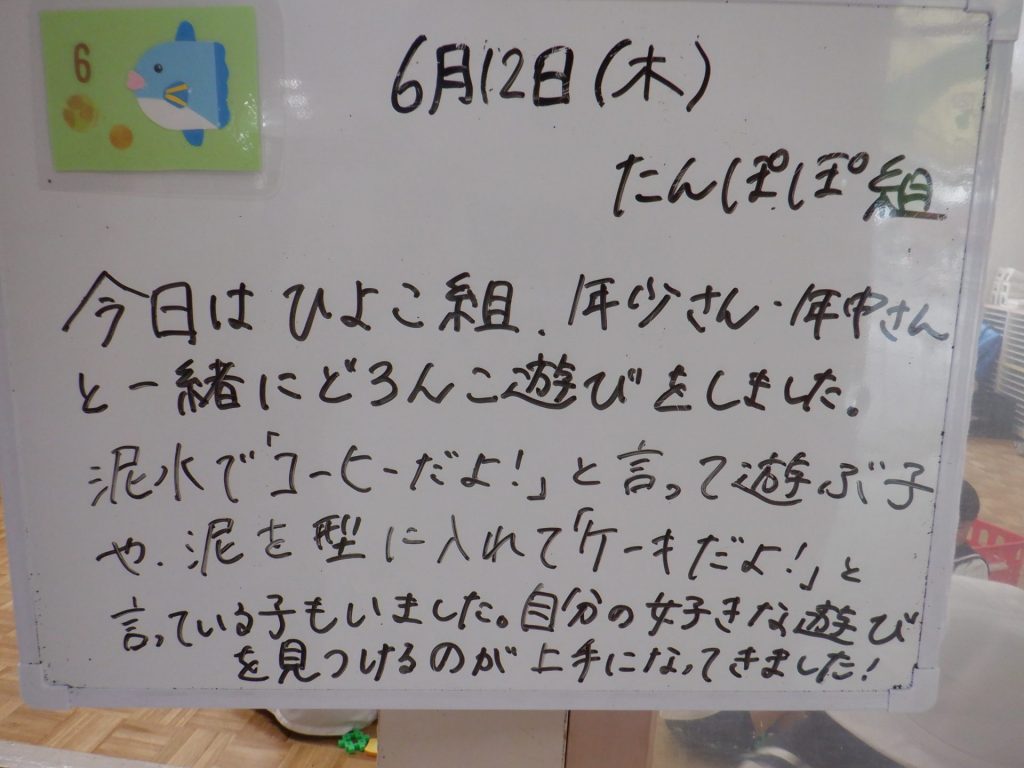 6
6月12日(木)
たんぽぽ組
今日はひよこ組、年少さん・年中さん
と一緒にどろんこ遊びをしました。
泥水で「コーヒーだよ!」と言って遊ぶ子
や、泥を型に入れて「ケーキだよ!」と
言っている子もいました。自分の好きな遊び
を見つけるのが上手になってきました!